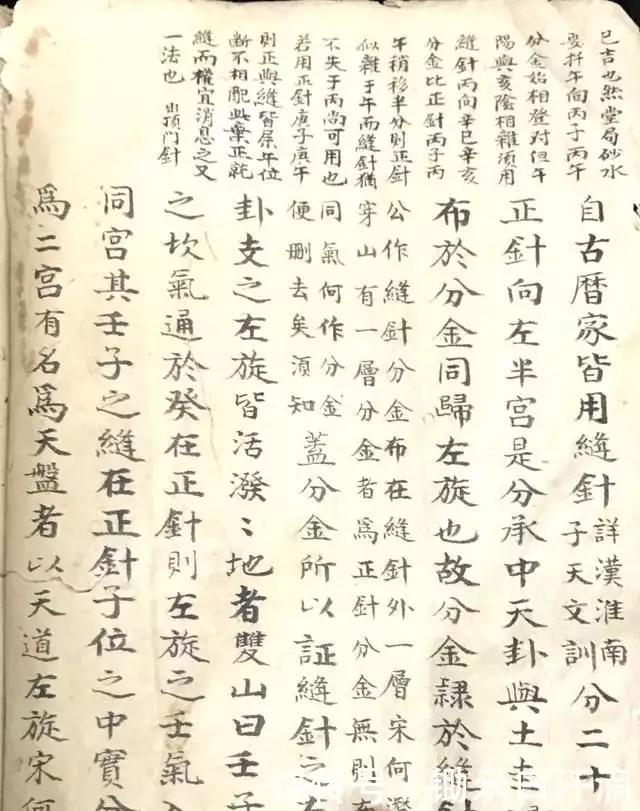 巳吉也然堂局砂水
要扦午向丙子丙午
分金始相登對但午
陽與亥陰相雜須用
縫針丙向辛巳辛亥
分金比正針丙子丙
午稍移半分則正針
似雜于午而縫針猶
不失于丙尚可用也
若用正針庚子庚午
則正與縫皆屬午位
斷不相配與棄正就
縫而權宜消息之又
一法也 出頂門針
自古曆家皆用縫針詳漢淮南子天文訓分二十
正針向左半宮是分承中天卦與土
布於分金同歸左旋也故分金隸於縫
公作縫針分金布在縫針外一層宋何潑
穿山有一層分金者爲正針分金無則
同氣何作分金
便刪去矣須知
蓋分金所以証縫針之左
卦支之左旋皆活潑〻地者雙山曰壬子
之坎氣通於癸在正針則左旋之壬氣入
同宮其壬子之縫在正針子位之中實分
爲二宮有名爲天盤者以天道左旋宋何